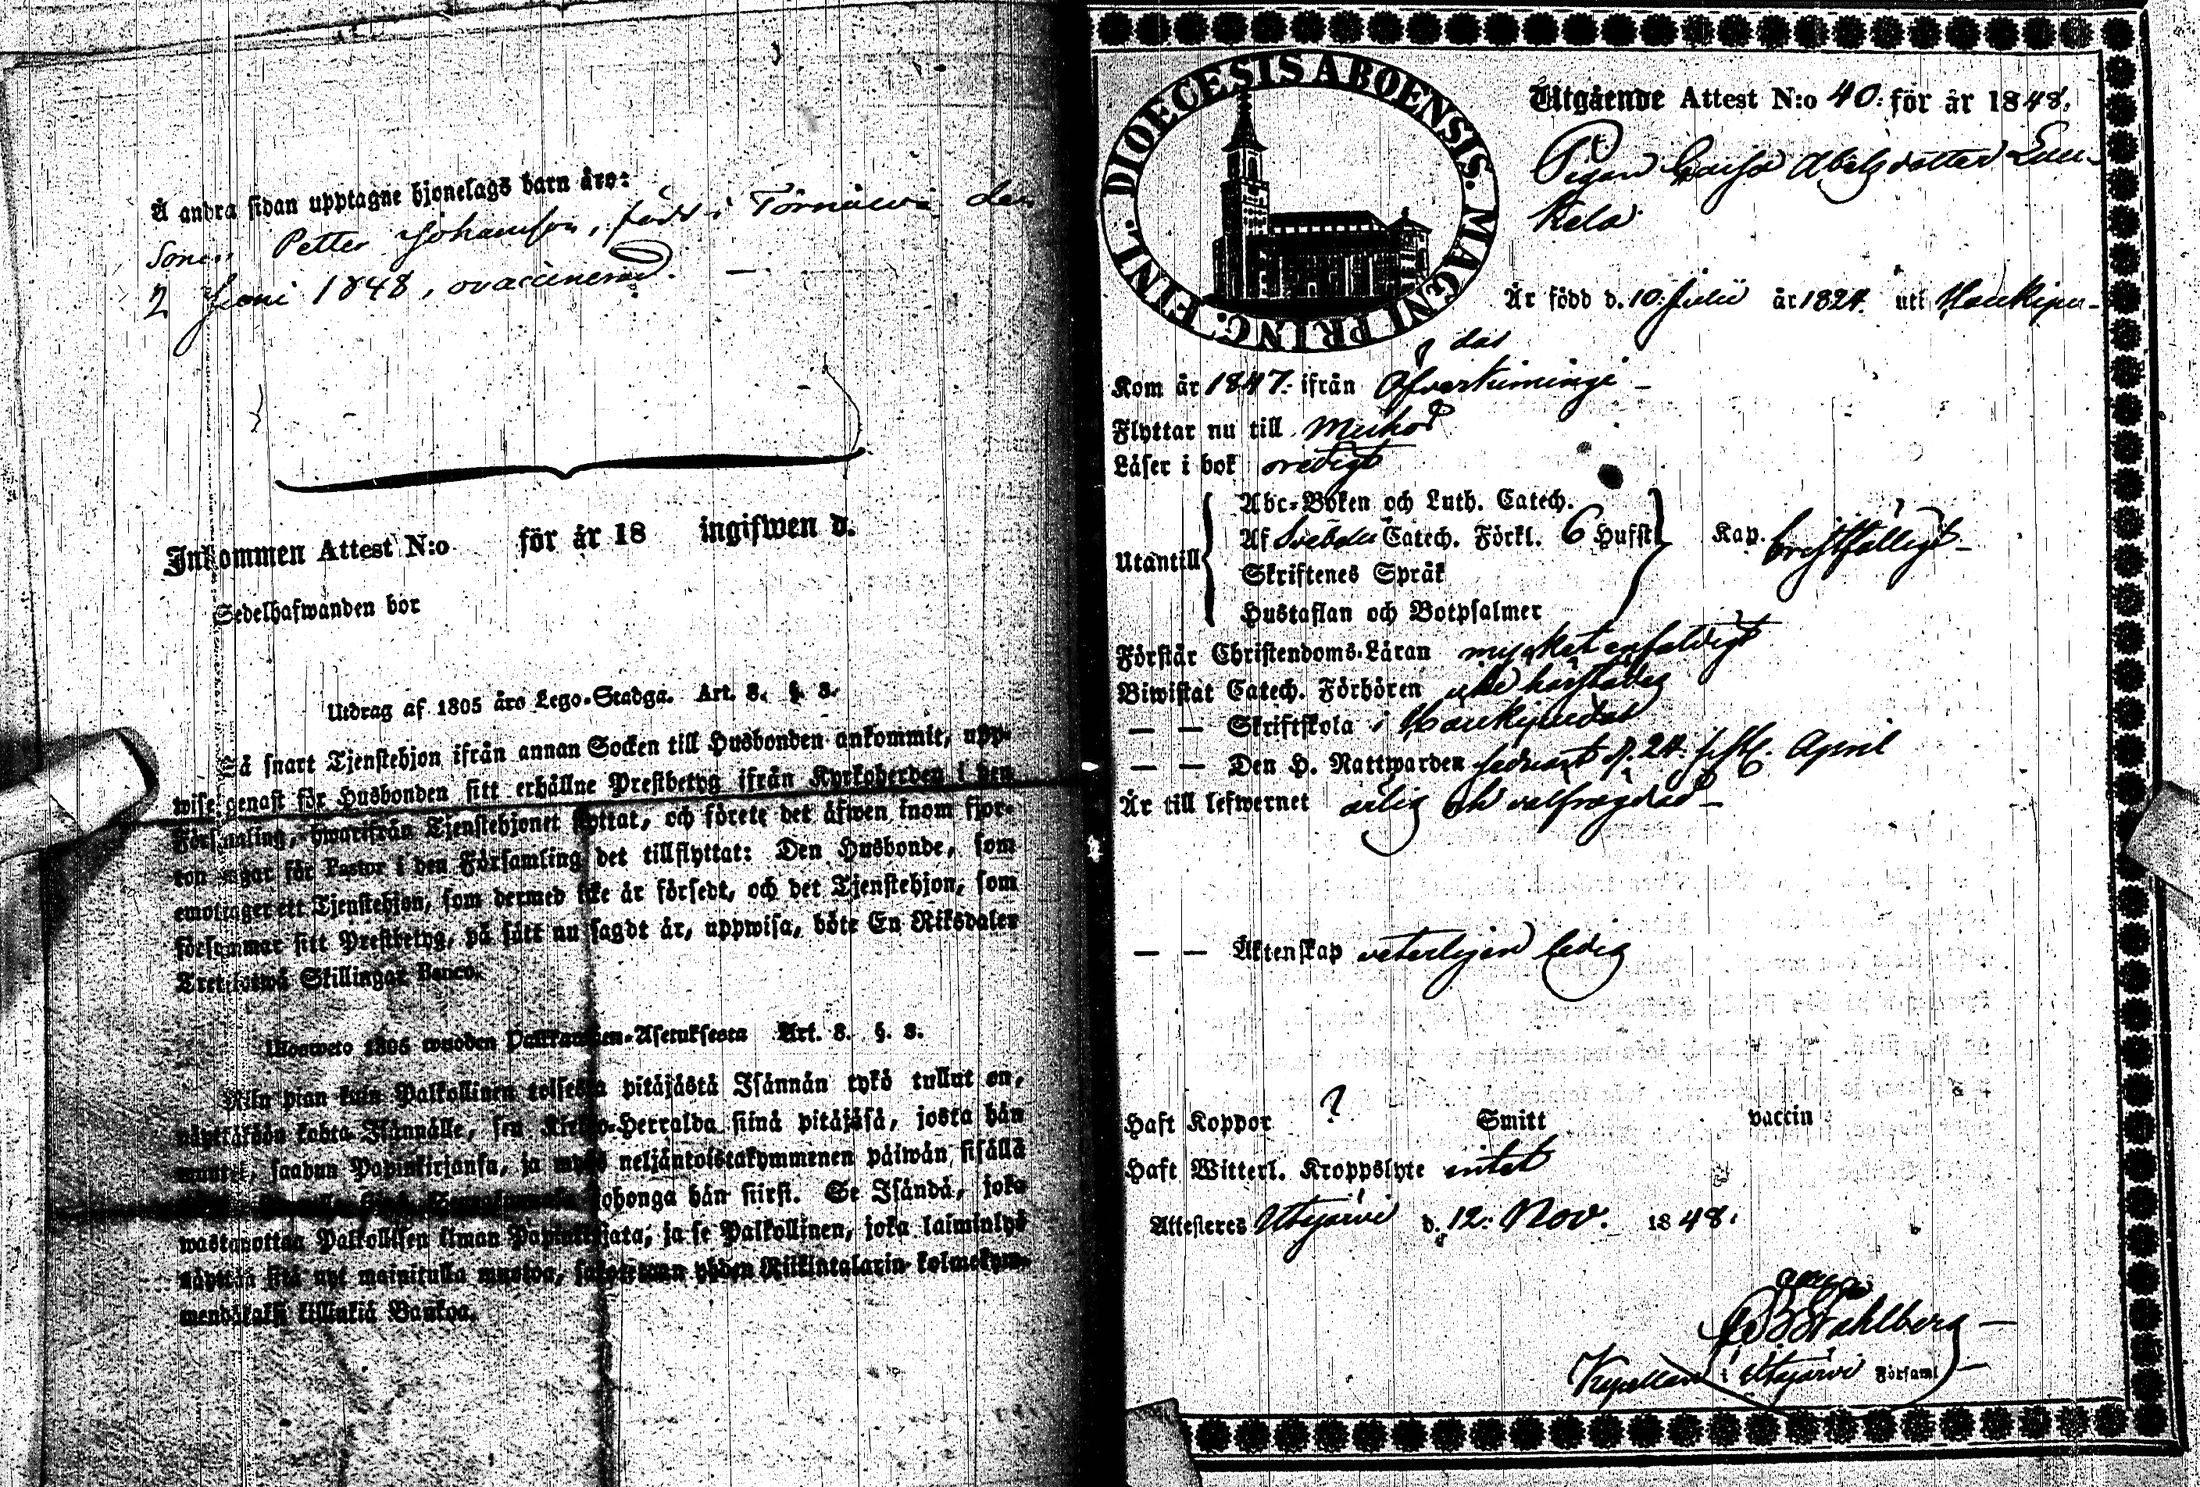 Å andra sidan upptagne hjonelags barn äro:
Sonen Petter Johansson, född i Törnäwä den
2 Juni 1848, ovaccinerad.
Inkommen Attest N:o för år 18 ingifwen d.
Sedelhafwanden bor
Utdrag af 1805 års Lego-Stadga. Art. 8. §. 8.
Så snart Tjenstehjon ifrån annan Socken till Husbonden ankommit, upp-
wise genast för Husbonden sitt erhållne Prestbetyg ifrån Kyrkoherden i den
Församling, hwarifrån Tjenstehjonet flyttat, och förete det äfwen inom fjor-
ton dagar för Pastor i den Församling det tillflyttat: Den Husbonde, som
emottager ett Tjenstehjon, som dermed icke är försedt, och det Tjenstehjon, som
försummar sitt Prestbetyg, på sätt nu sagdt är, uppwisa, böte En Riksdaler
Trettiotwå Skillingar Banco.
Ulosweto 1805 wuoden Palkkawäen-Asetuksesta Art. 8. §. 8.
Niin pian kuin Palkollinen toisesta pitäjästä Isännän tykö tullut on,
näyttäköön kohta Isännälle, sen Kirkko-Herralda siinä pitäjäsä, josta hän
muutti, saadun Papinkirjansa, ja myös neljäntoistakymmenen päiwän sisällä
johonga hän siirsi. Se Isändä, joka
wastanottaa Palkollisen ilman Papinkirjata, ja se Palkollinen, joka laiminlyö
näyttää sitä nyt mainitulla muotoa, sakotetaan yhden Riikintalarin kolmekym-
mendäkaksi killinkiä Bankoa.
DIOECESIS ABOENSIS. MAGNI PRINC. FINL.
Utgående Attest N:o 40. för år 1848.
Pigan Caisa Abelsdotter Luu-
kela
Är född d. 10 Julii år 1824. uti Haukipu-
das
Kom år 1847. ifrån Öfverkiminge
Flyttar nu till Muhos
Läser i bok oredigt
Utantill
Abc-Boken och Luth. Catech.
Af Svebelii Catech. Förkl. 6 Hufst. Kap. bristfälligt
Skriftenes Språk
Hustaflan och Botpsalmer
Förstår Christendoms-Läran mycket enfaldigt
Biwistat Catech. Förhören icke härstädes
— — Skriftskola i Haukipudas
— — Den H. Nattwarden sednast d. 24. sistl. April
Är till lefwernet ärlig och välfrägdad
— — Äktenskap veterligen ledig
Haft Koppor ? Smitt vaccin
Haft Witterl. Kroppslyte intet
Attesteres Utajärvi d. 12. Nov. 1848.
Wahlberg
Kapellan i Utajärvi Församl